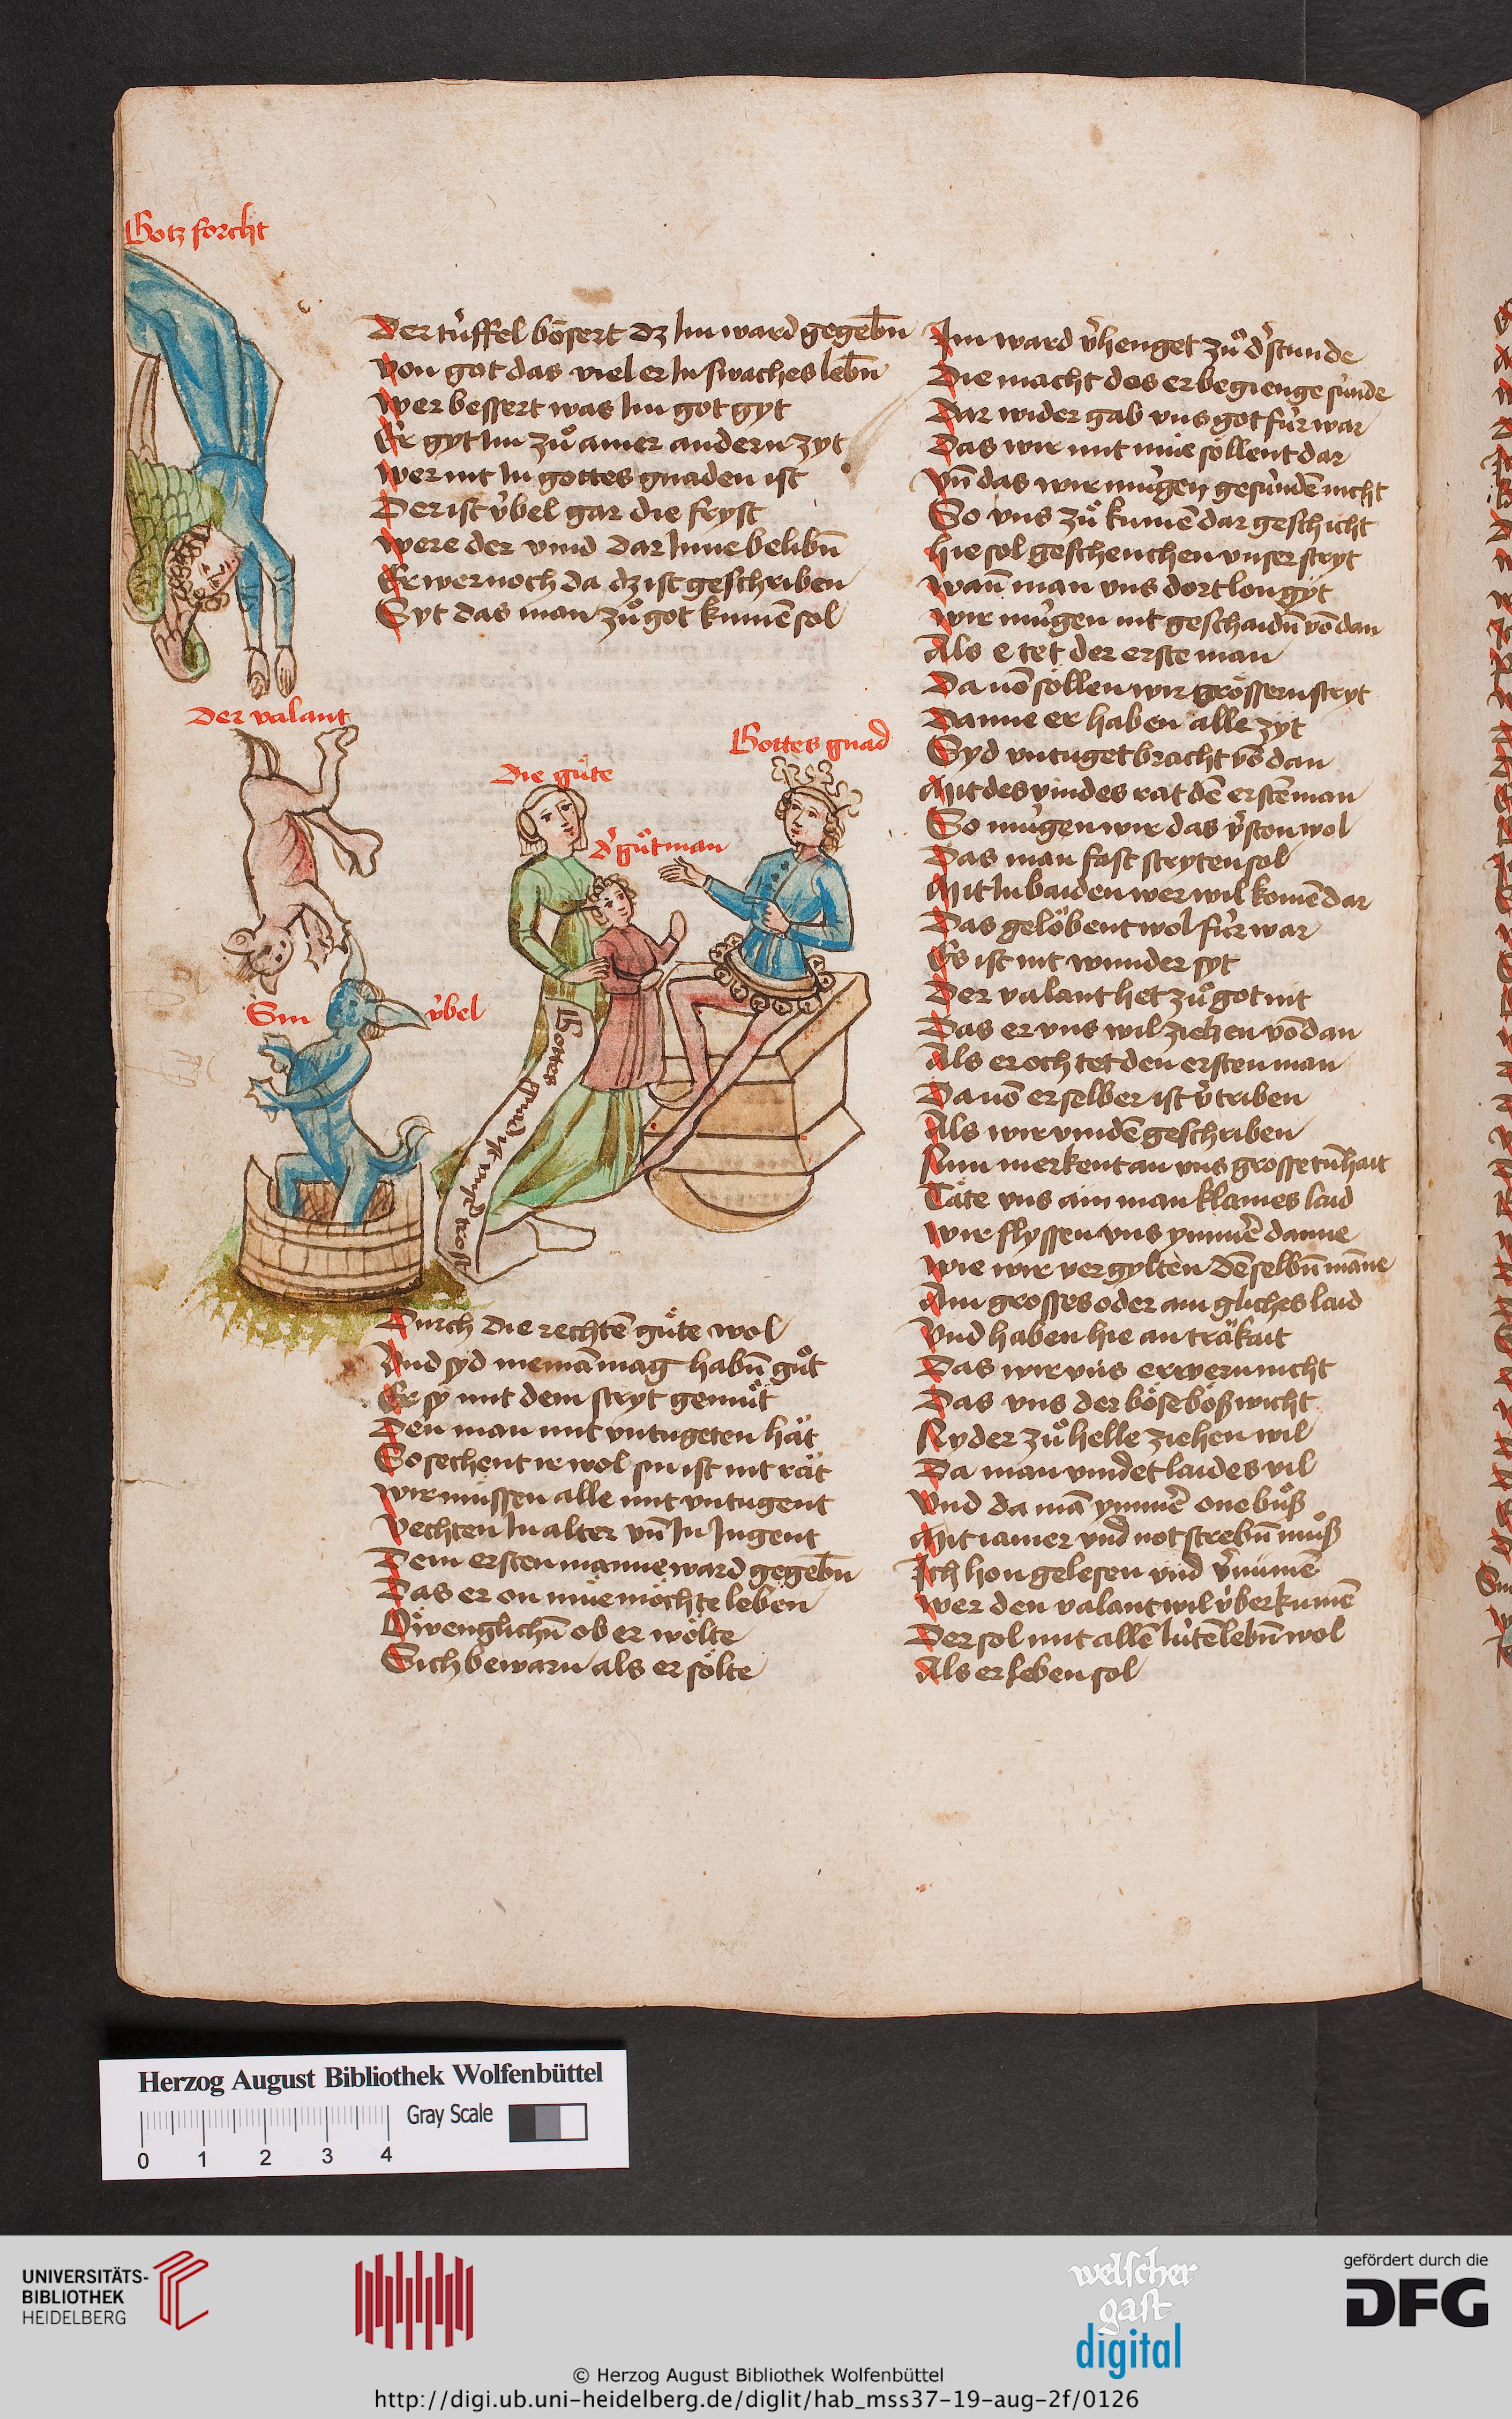 Gotz forcht
Der tüffel bösert dz Im ward gegebn̄
Von got das viel er In swaches lebn̄
Wer bessert was Im got gyt
Er gyt Im zuͦ ainer andern zyt
Wer nit In gottes gnaden ist
Der ist v̓bel gar die fryst
Were der vind dar Inne belibn̄
Er wer noch da dz ist geschriben
Syt das man zuͦ got kumē sol
Der valant
Sin v̓bel
Die guͤte
d̓ guͦt man
Gottes gnad
Gottes gnad ist
trost
Durch die rechtē guͤte wol
Vnd syd niemā mag habn̄ guͦt
Er sy mit dem stryt gemuͦt
Den man mit vntugeten hät
So sechent ir wol sin ist nit rät
Wir müssen alle mit vntugent
Vechten In alter vn̄ In Jugent
Dem ersten manne ward gegebn̄
Das er on müe möchte leben
Öwenglichn̄ ob er wölte
Sich bewarn als er sölte
Im ward v̓henget zuͦ d̓ stunde
Die macht das er begienge sünde
Dar wider gab vns got fürwar
Das wir mit müe söllent dar
Vn̄ das wir mügen gesündē nicht
So vns zuͦ kumē dar geschicht
Hie sol geschenchen vnser stryt
Wan̄ man vns dort lon gyt
Wir mügen nit geschaidn̄ vō dan
Als e tet der erste man
Da uō söllen wir grössern stryt
Danne er haben alle zyt
Syd vntuget bracht vō dan
Mit des vindes rat dē erstē man
So mügen wir das v̓ston wol
Das man fast stryten sol
Mit In baiden wer wil komē dar
Das gelöbent wol fürwar
Es ist nit wunder syt
Der valant het zuͦ got nit
Das er vns wil ziehen vō dan
Als er och tet den ersten man
Da uō er selber ist v̓triben
Als wir vindē geschriben
Nun merkent an vns grosse tu̅hait
Täte vns ain man klaines laid
Wir flyssen vns ym̄mē danne
Wie wir vergylten dē selbn̄ māne
Ain grosses oder ain gliches laid
Vnd haben hie an träkait
Das wir vns erwern nicht
Das vns der böse bößwicht
Nyder zuͦ helle ziehen wil
Da man vindet laides vil
Vnd da mā ym̄mē one buͦß
Mit iamer vnd not strebn̄ muͦß
Ich hon gelesen vnd v̓numē
Wer den valant wil v̓berkumē
Der sol mit allē lütē lebn̄ wol
Als er leben sol
Herzog August Bibliothek Wolfenbüttel
Gray Scale
0 1 2 3 4
UNIVERSITÄTS-
BIBLIOTHEK
HEIDELBERG
welscher
gast
digital
gefördert durch die
DFG
© Herzog August Bibliothek Wolfenbüttel
http://digi.ub.uni-heidelberg.de/diglit/hab_mss37-19-aug-2f/0126